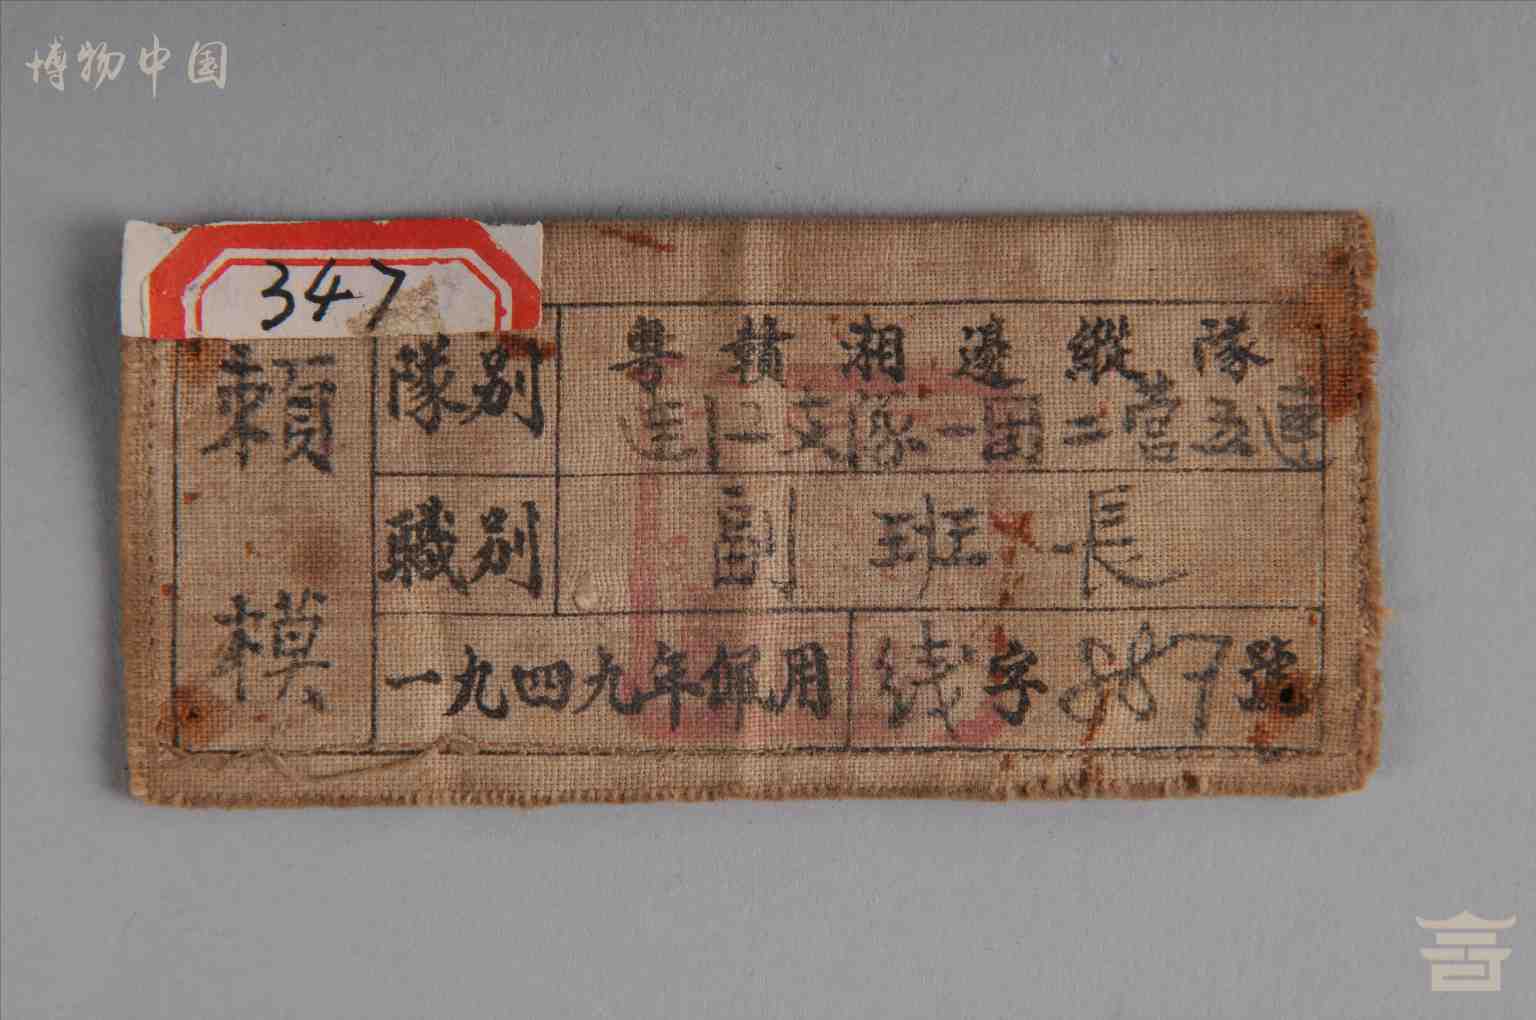 博物中国
347
賴模
隊別
粵贛湘邊縱隊
連江支隊一团二營五連
職別
副班長
一九四九年佩用
线字 887號